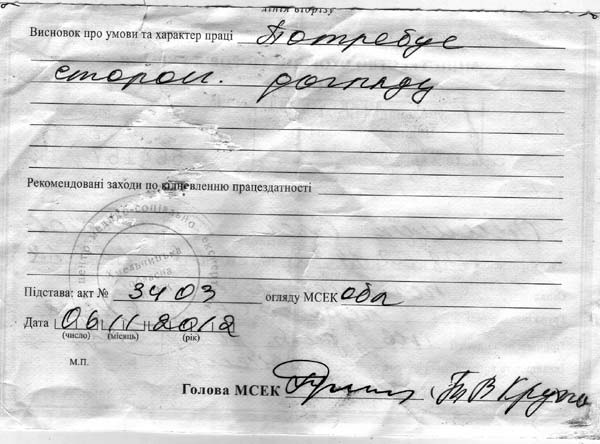 лінія відрізу
Висновок про умови та характер праці Потребує
сторон. догляду
Рекомендовані заходи по відновленню працездатності
Підстава: акт № 3403 огляду МСЕК обл
Дата 06 11 2012
(число) (місяць) (рік)
М.П.
Голова МСЕК